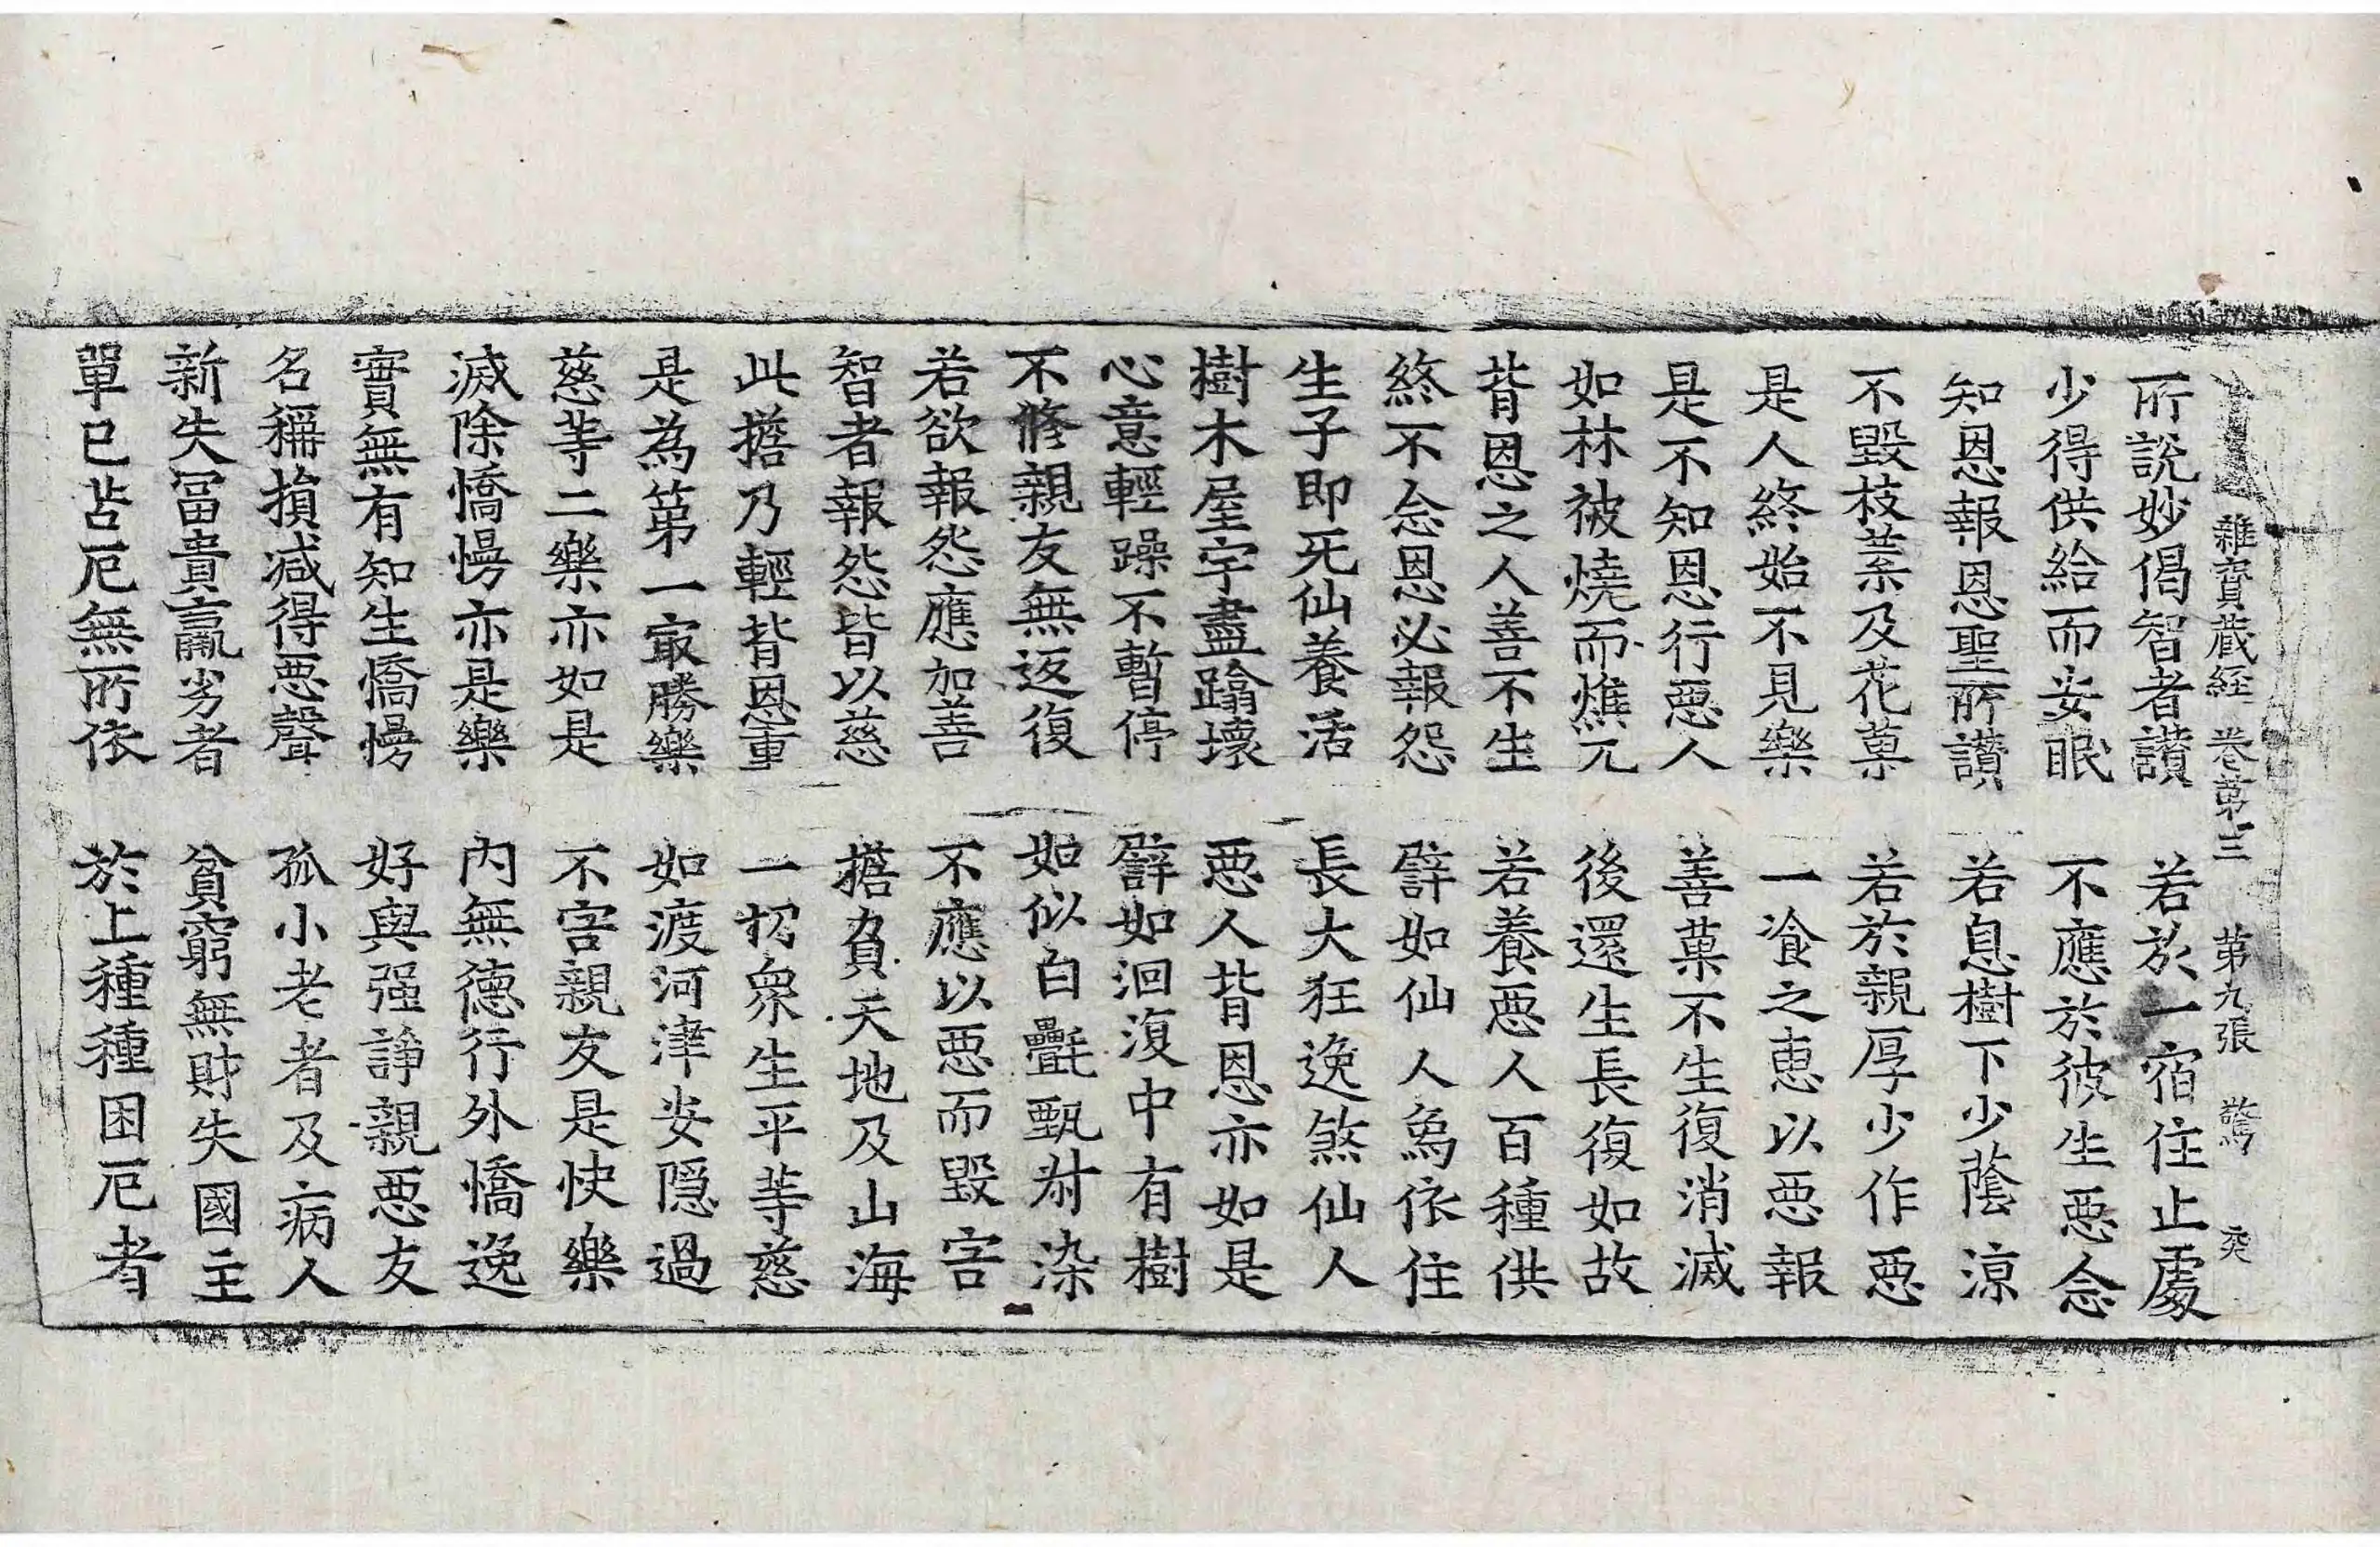 雜寶藏經卷第三 第九張 驚 奕
所說妙偈智者讃 若於一宿住止處
少得供給而安眠 不應於彼生惡念
知恩報恩聖所讃 若息樹下少蔭涼
不毀枝葉及花菓 若於親厚少作惡
是人終始不見樂 一飡之恵以惡報
是不知恩行惡人 善菓不生復消滅
如林被燒而燋兀 後還生長復如故
背恩之人善不生 若養惡人百種供
終不念恩必報怨 譬如仙人象依住
生子即死仙養活 長大狂逸煞仙人
樹木屋宇盡蹋壞 惡人背恩亦如是
心意輕躁不暫停 譬如洄澓中有樹
不修親友無返復 如似白㲲甄叔染
若欲報怨應加善 不應以惡而毀害
智者報怨皆以慈 擔負天地及山海
此擔乃輕背恩重 一切衆生平等慈
是為第一最勝樂 如渡河津安隱過
慈等二樂亦如是 不害親友是快樂
滅除憍慢亦是樂 內無德行外憍逸
實無有知生憍慢 好與强諍親惡友
名稱損減得惡聲 孤小老者及病人
新失冨貴羸劣者 貧窮無財失國主
單己苦厄無所依 於上種種困厄者